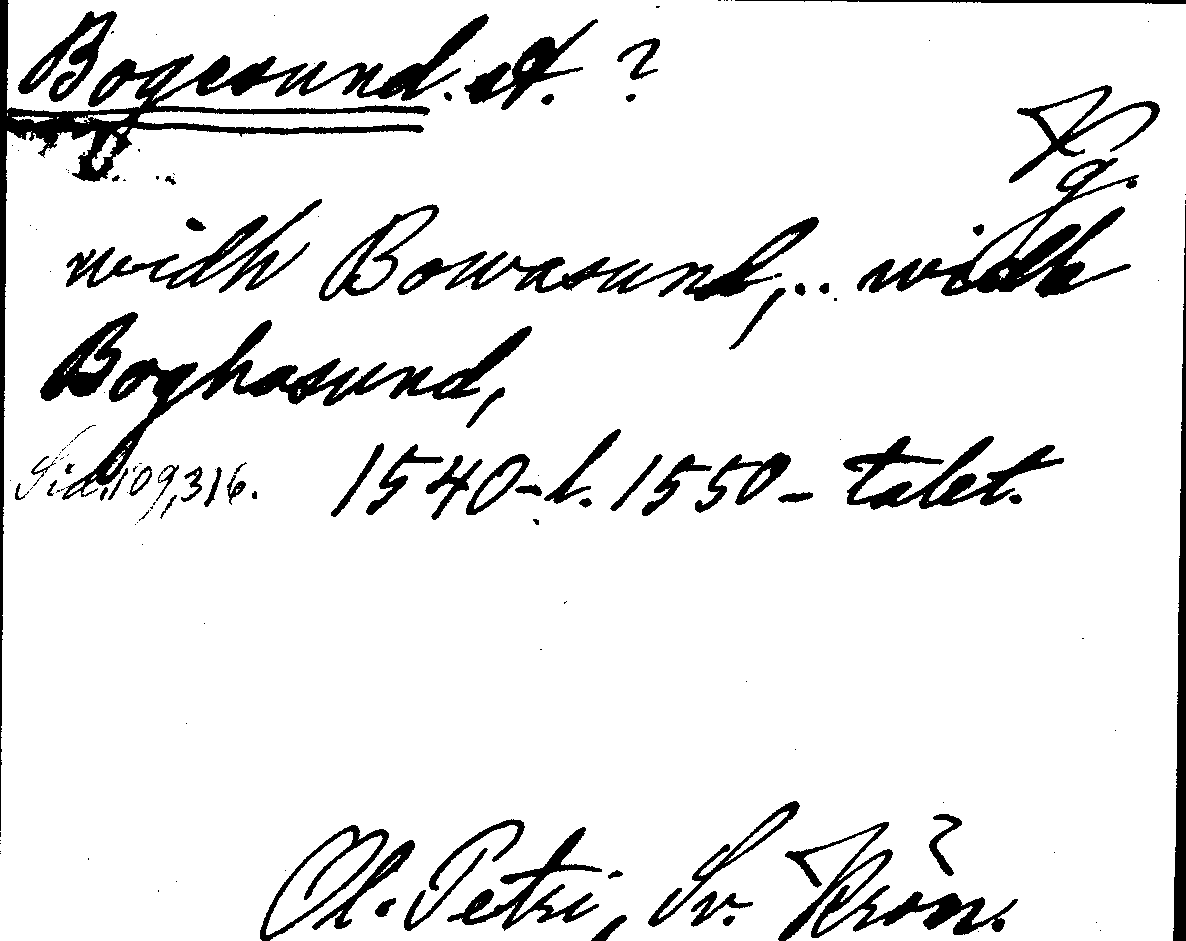 Bogesund. st. ?
Kg.
widh Bowasund,.. widh
Boghasund,
Sid. 109,316. 1540-l. 1550-talet.
Ol. Petri, Sv. Krön.